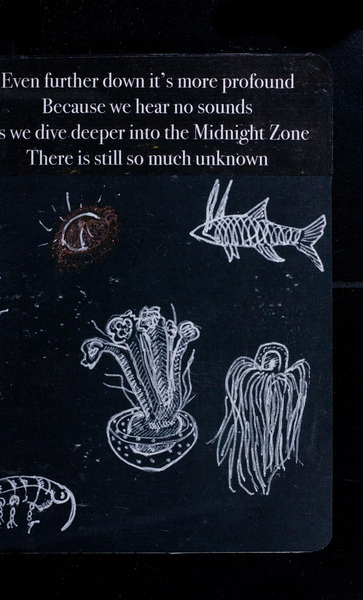 Even further down it's more profound
Because we hear no sounds
s we dive deeper into the Midnight Zone
There is still so much unknown